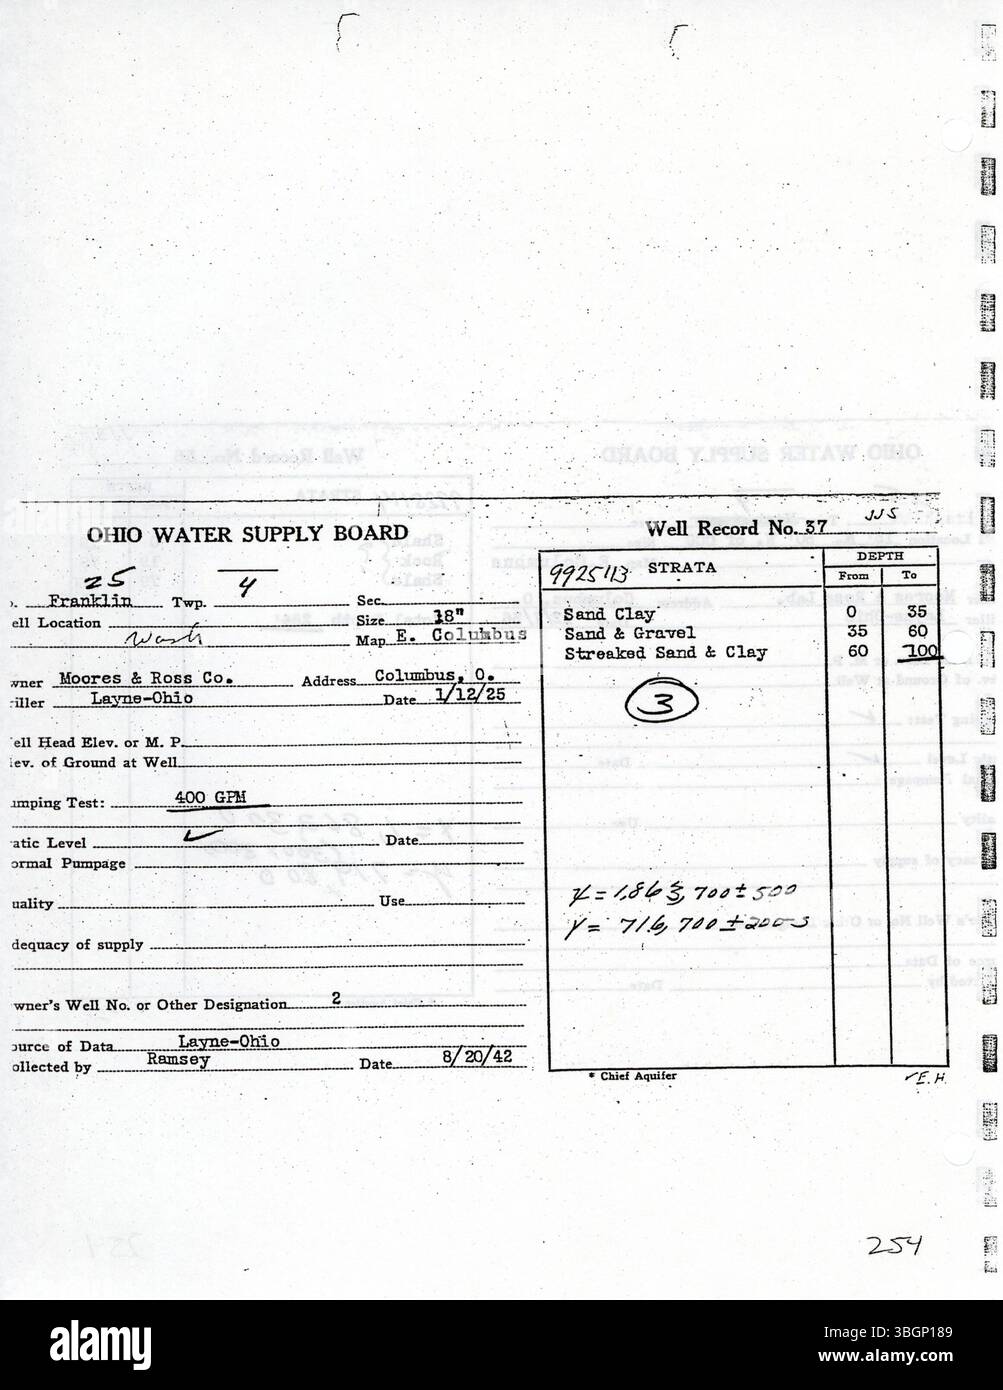 OHIO WATER SUPPLY BOARD
Well Record No. 37
JJS
25
4
Franklin Twp. Sec.
ell Location Size 18"
Wash Map E. Columbus
wner Moores & Ross Co. Address Columbus, O.
iller Layne-Ohio Date 1/12/25
ell Head Elev. or M. P.
lev. of Ground at Well
umping Test: 400 GPM
atic Level Date
ormal Pumpage
uality Use
dequacy of supply
wner's Well No. or Other Designation 2
ource of Data Layne-Ohio
ollected by Ramsey Date 8/20/42
9925113 STRATA
DEPTH
From To
Sand Clay 0 35
Sand & Gravel 35 60
Streaked Sand & Clay 60 100
3
X = 1,863,700 ± 500
Y = 716,700 ± 200
* Chief Aquifer
E.H.
254
alamy
Image ID: 3BGP189
www.alamy.com